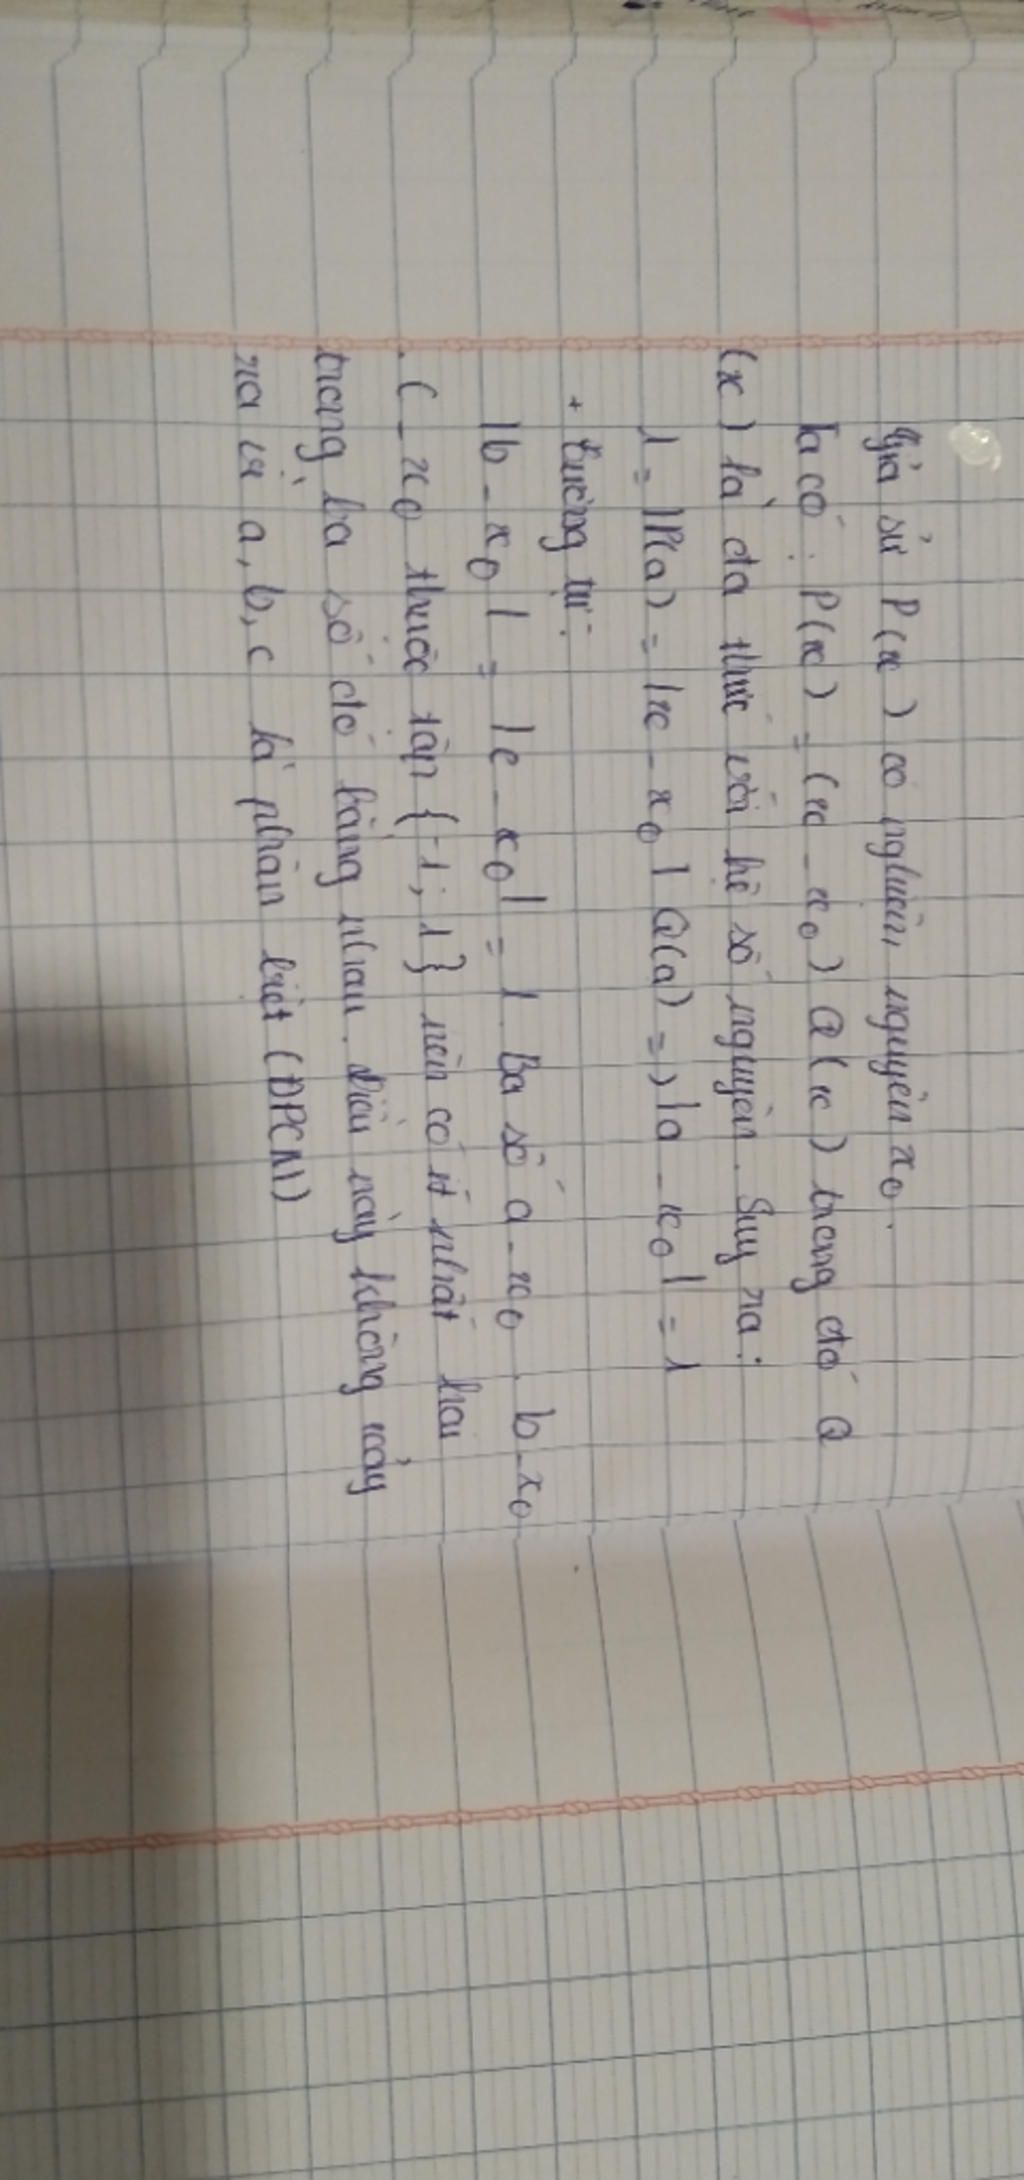 Giả sử P(x) có nghiệm nguyên x₀.
Ta có: P(x) = (x - x₀) Q(x) trong đó Q
(x) là đa thức với hệ số nguyên. Suy ra:
1 = |P(a) = |x - x₀| Q(a) => |a - x₀| = 1
+ tương tự:
|b - x₀| = |c - x₀| = 1. Ba số a - x₀. b - x₀
. C - x₀ thuộc tập {-1; 1} nên có ít nhất hai
trong ba số đó bằng nhau. Điều này không xảy
ra vì a, b, c là phân biệt (ĐPCM)